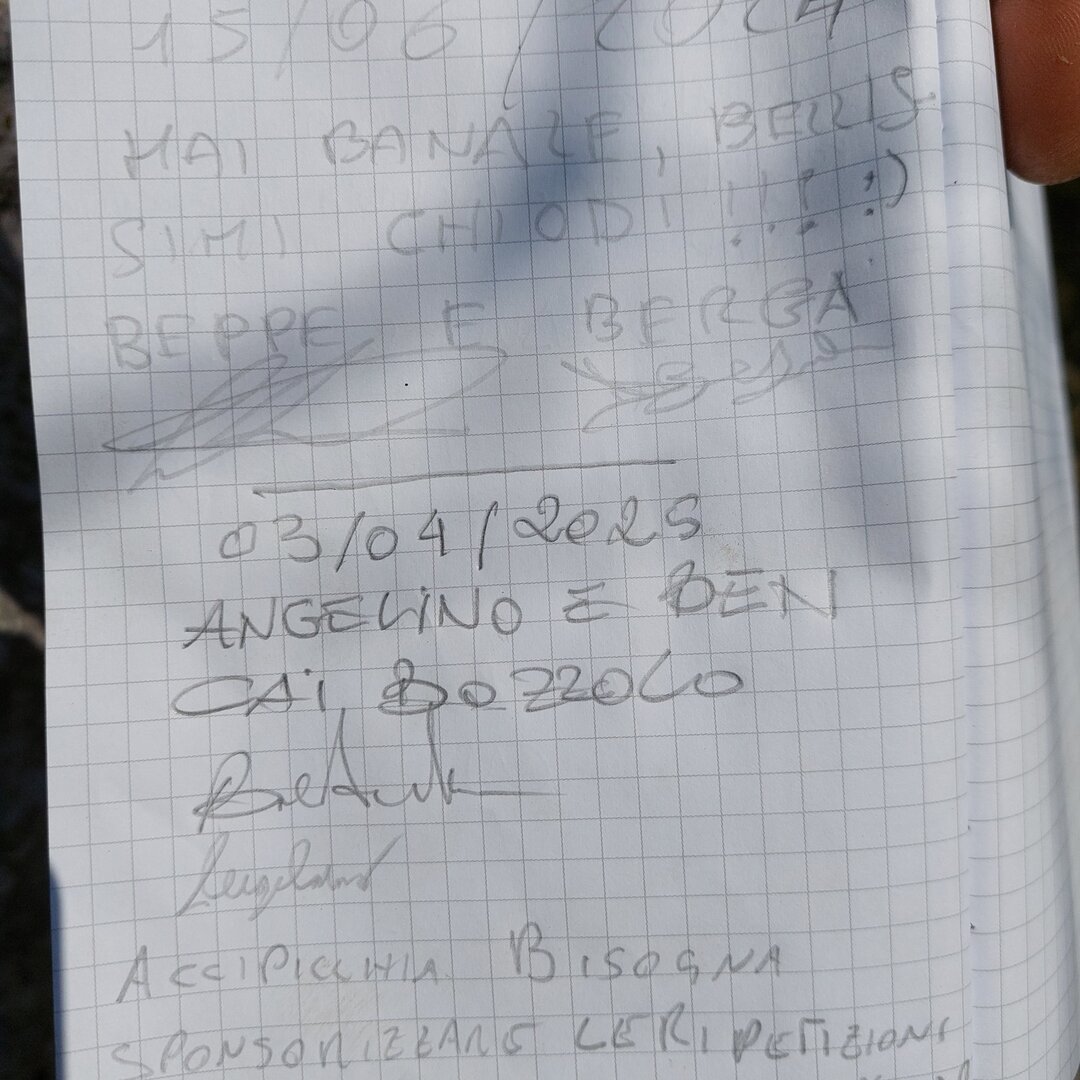 15/06/2024
MAI BANALE, BELLIS
SIMI CHIODI !!! :)
BEPPE E BERGA
03/04/2025
ANGELINO E BEN
CAI BOZZOLO
ACCIPICCHIA BISOGNA
SPONSORIZZARE LE RIPETIZIONI